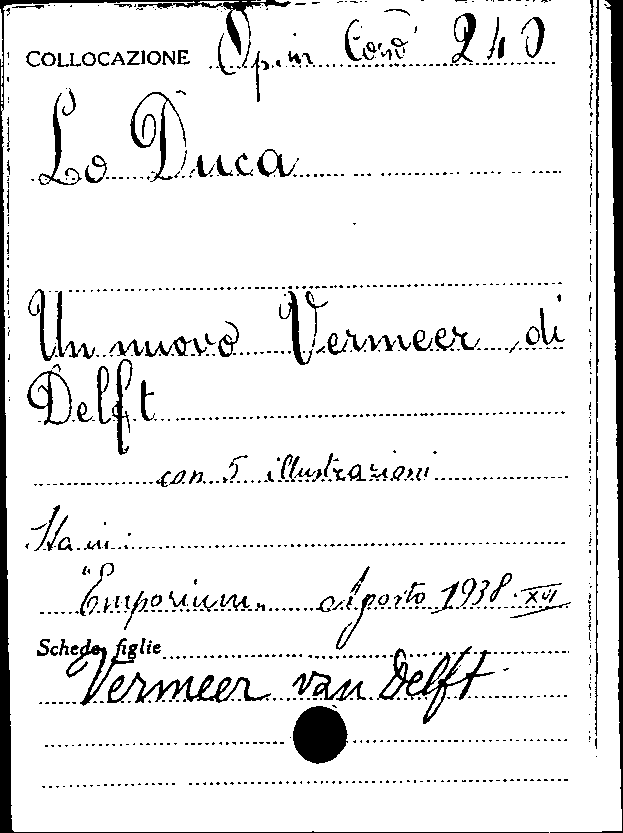 COLLOCAZIONE Op. in Cons 240
Lo Duca
Un nuovo Vermeer di
Delft
con 5 illustrazioni
Sta in:
"Emporium" Agosto 1938. XVI
Schede figlie
Vermeer van Delft